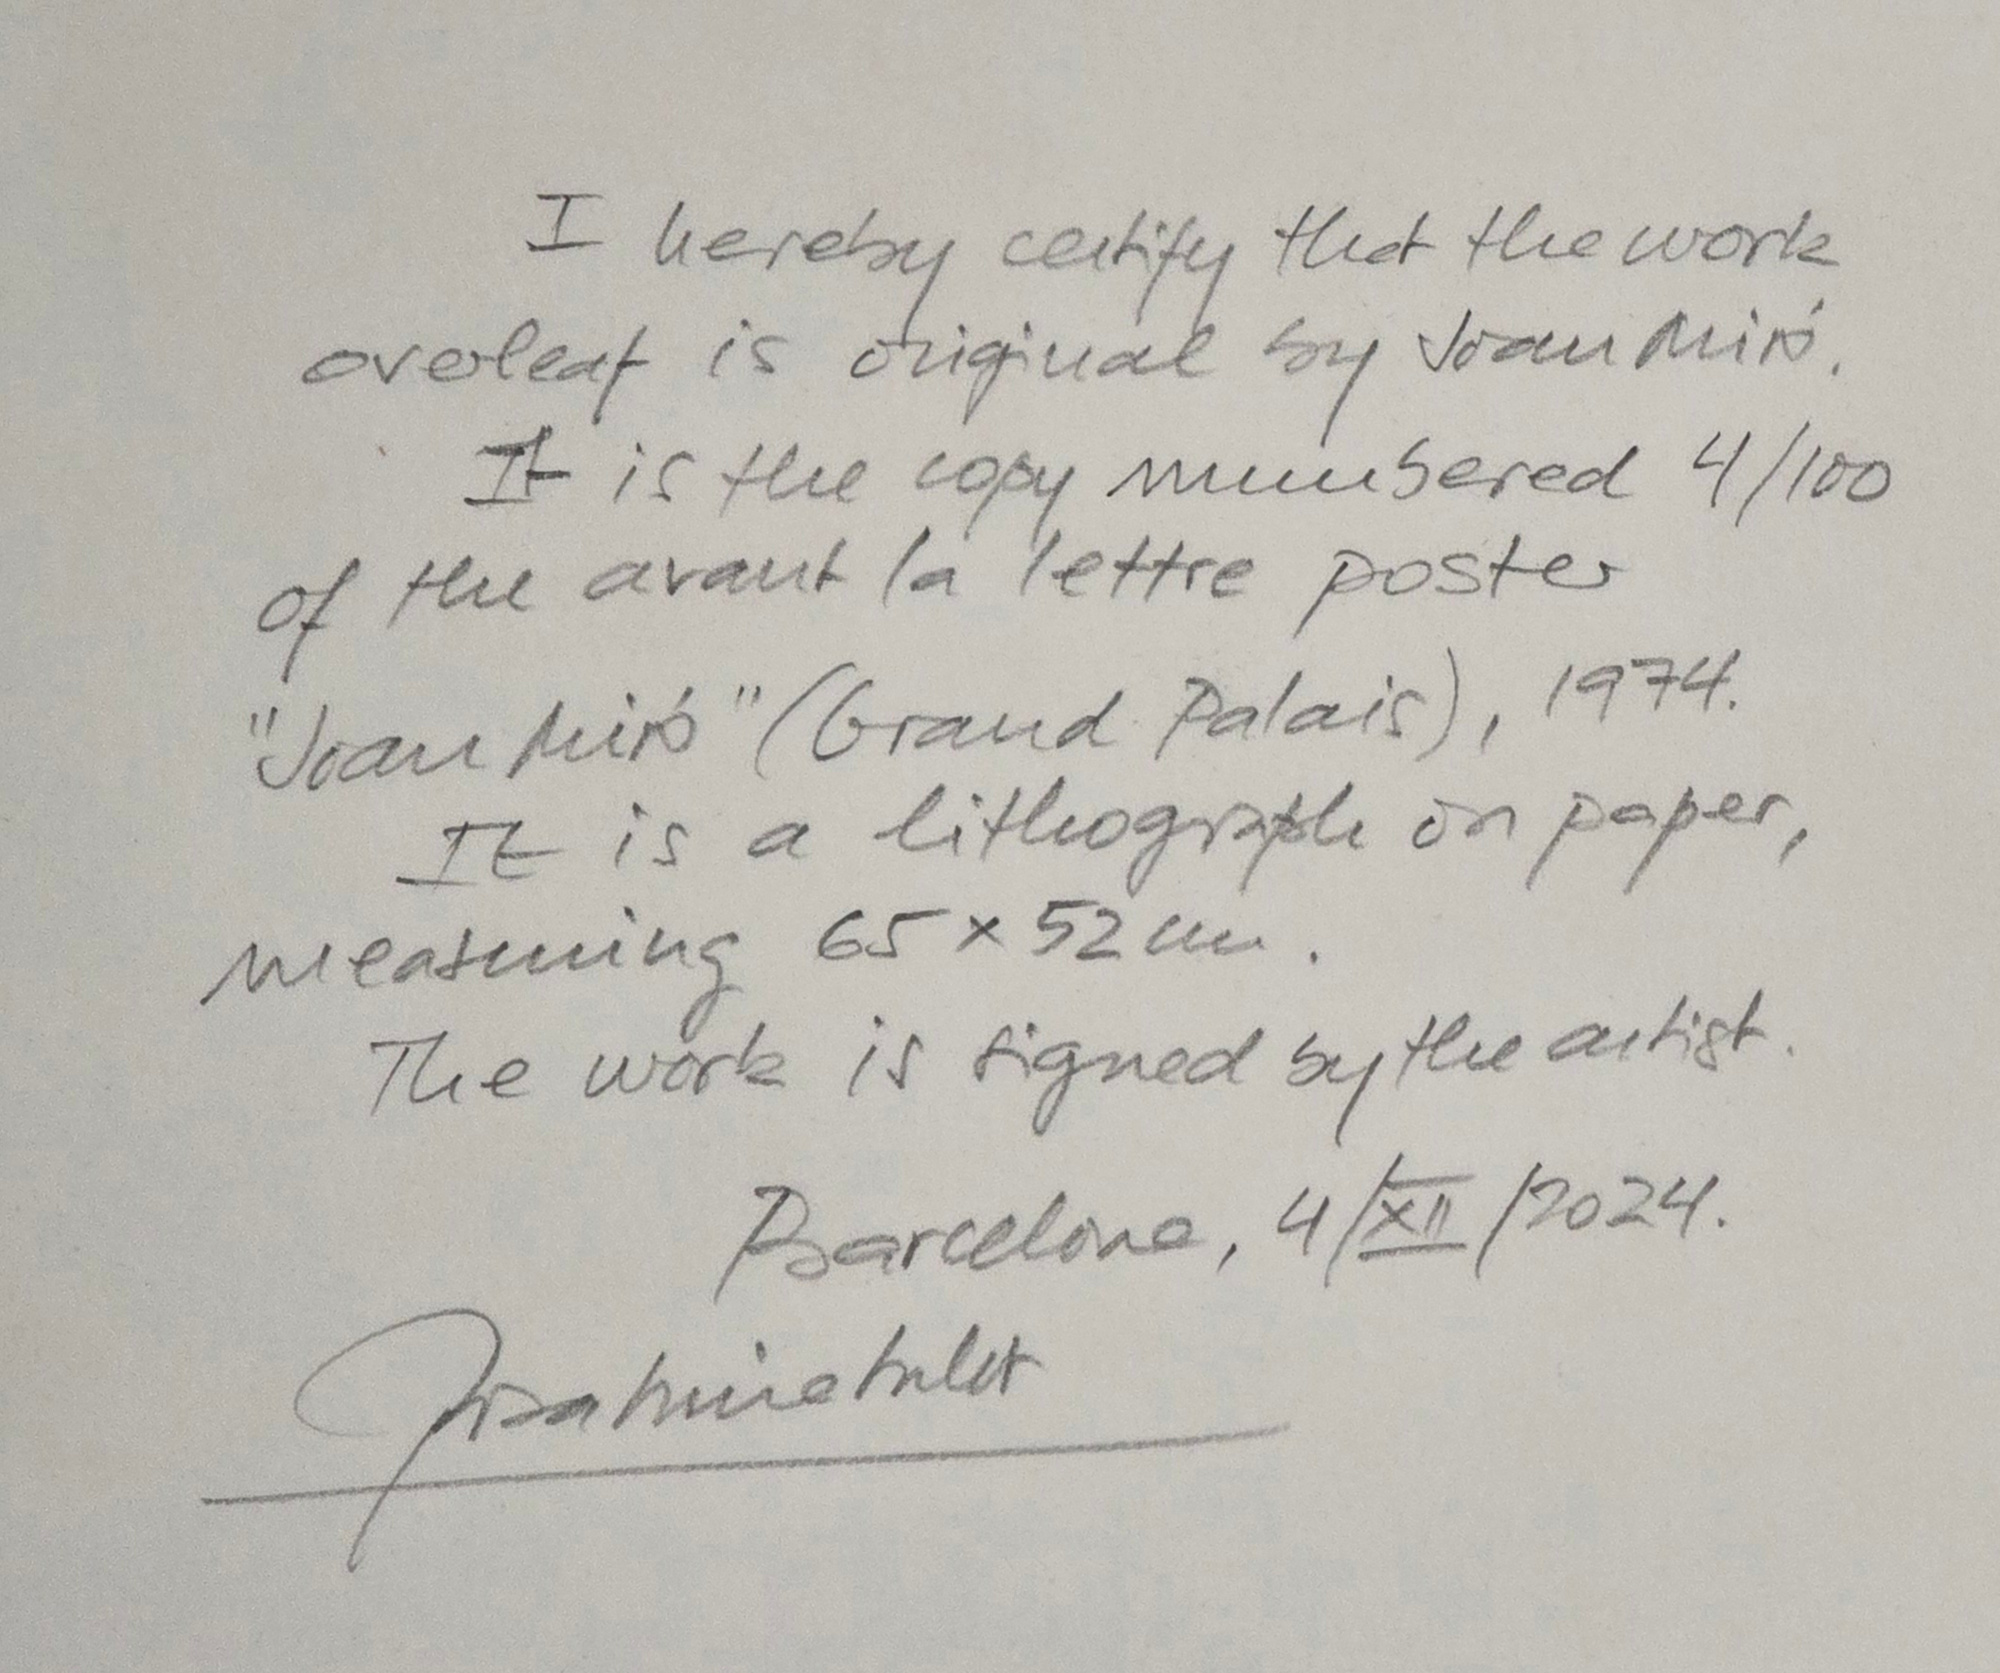 I hereby certify that the work
overleaf is original by Joan Miró.
It is the copy numbered 4/100
of the avant la lettre poster
"Joan Miró" (Grand Palais), 1974.
It is a lithograph on paper,
measuring 65 x 52 cm.
The work is signed by the artist.
Barcelona, 4/XII/2024.